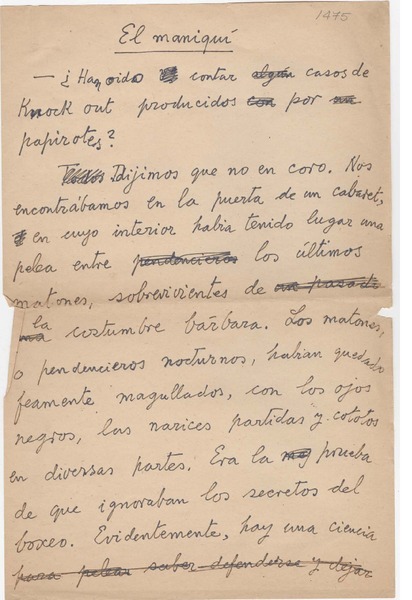 1475
El maniquí
— ¿Han oido contar algún casos de
Knock out producidos con por un
papirotes?
Todos Dijimos que no en coro. Nos
encontrábamos en la puerta de un cabaret,
en cuyo interior habia tenido lugar una
pelea entre pendencieros los últimos
matones, sobrevivientes de un pasado
la costumbre bárbara. Los matones,
o pendencieros nocturnos, habian quedado
feamente magullados, con los ojos
negros, las narices partidas y cototos
en diversas partes. Era la prueba
de que ignoraban los secretos del
boxeo. Evidentemente, hay una ciencia
para pelear saber defenderse y dejar